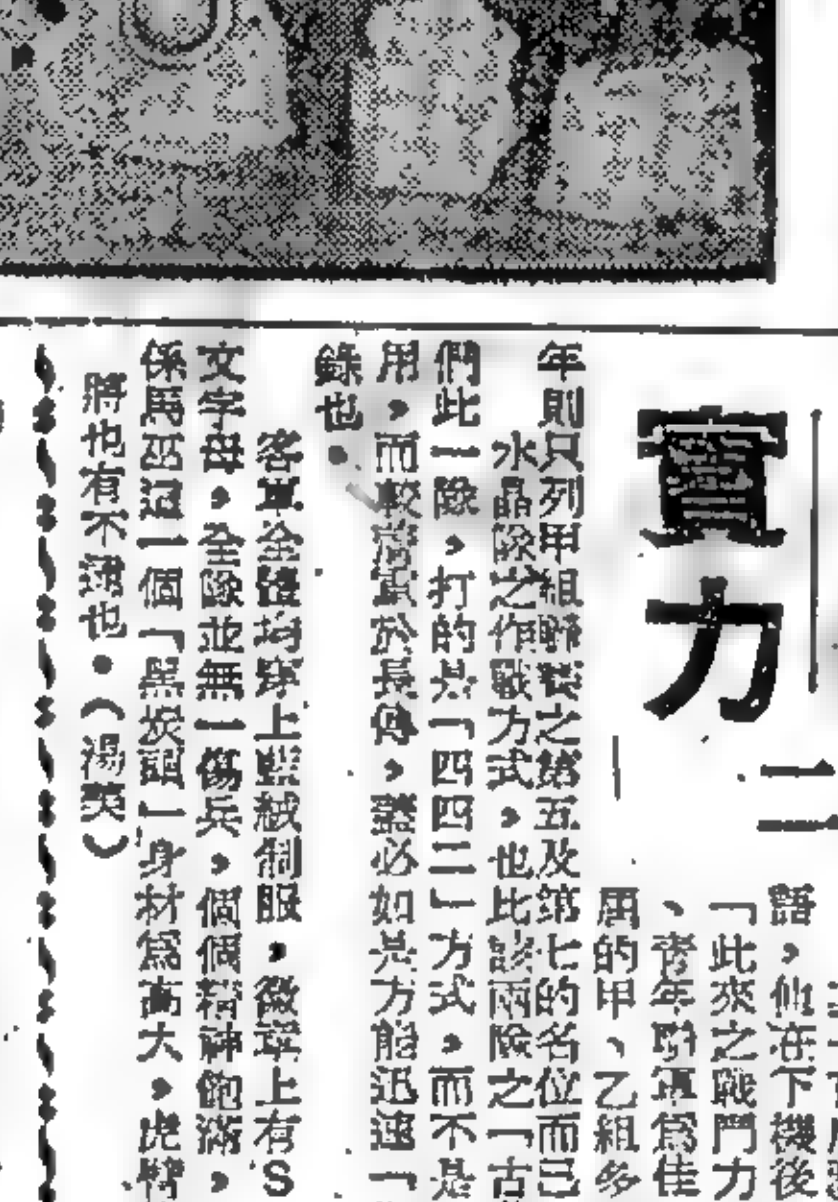 實力
二
語，他在下機後
「此來之戰鬥力
、青年聯軍為佳
屆的甲、乙組多
年則只列甲組聯賽之第五及第七的名位而已
水晶隊之作戰方式，也比該兩隊之「古
們此一隊，打的是「四四二」方式，而不是
用，而較着重於長傳，蓋必如是方能迅速「
錄也．
客軍全體均穿上藍絨制服，徽章上有S
文字母，全隊並無一傷兵，個個精神飽滿，
係馬巫這一個「黑炭頭」身材為高大，虎
將也有不逮也．（湯美）